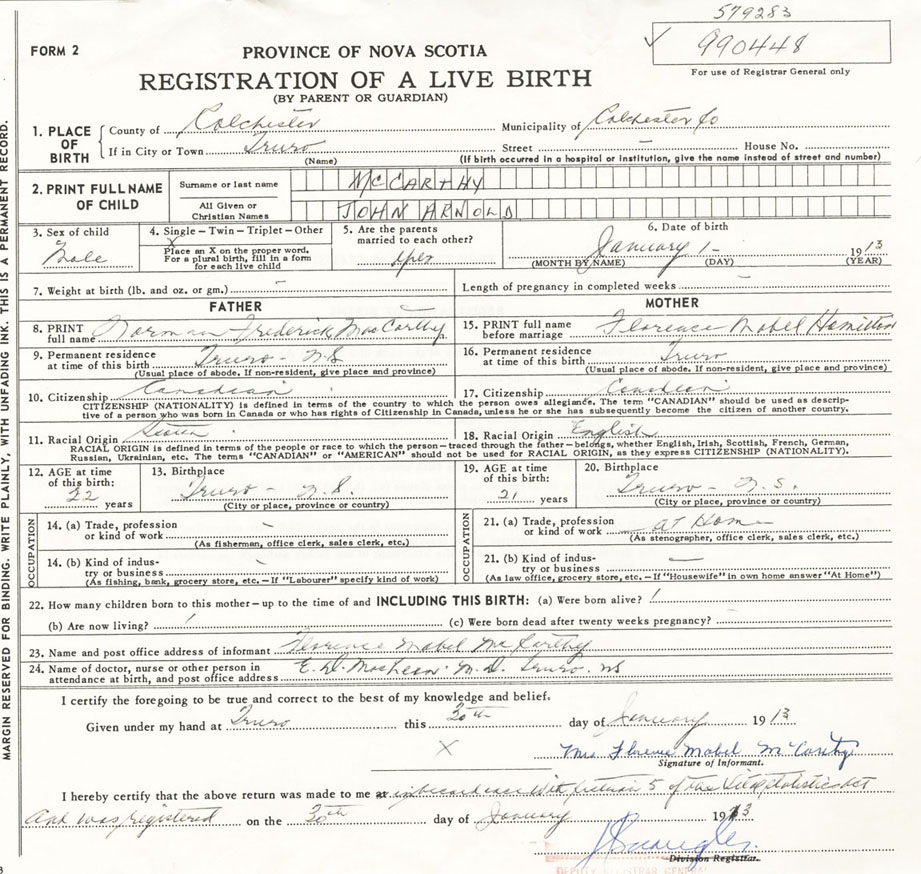 579283
✓ 990448
FORM 2
PROVINCE OF NOVA SCOTIA
REGISTRATION OF A LIVE BIRTH
(BY PARENT OR GUARDIAN)
For use of Registrar General only
1. PLACE OF BIRTH
County of Colchester Municipality of Colchester Co
If in City or Town Truro Street — House No.
(Name) (If birth occurred in a hospital or institution, give the name instead of street and number)
2. PRINT FULL NAME OF CHILD
Surname or last name MCCARTHY
All Given or Christian Names JOHN ARNOLD
3. Sex of child Male
4. Single – Twin – Triplet – Other
X
Place an X on the proper word.
For a plural birth, fill in a form
for each live child
5. Are the parents
married to each other?
yes
6. Date of birth
January 1 - 1913
(MONTH BY NAME) (DAY) (YEAR)
7. Weight at birth (lb. and oz. or gm.) — Length of pregnancy in completed weeks —
FATHER
8. PRINT full name Norman Frederick MacCarthy
9. Permanent residence
at time of this birth Truro - N.S
(Usual place of abode. If non-resident, give place and province)
MOTHER
15. PRINT full name
before marriage Florence Mabel Hamilton
16. Permanent residence
at time of this birth Truro
(Usual place of abode. If non-resident, give place and province)
10. Citizenship Canadian 17. Citizenship Canadian
CITIZENSHIP (NATIONALITY) is defined in terms of the country to which the person owes allegiance. The term "CANADIAN" should be used as descrip-
tive of a person who was born in Canada or who has rights of Citizenship in Canada, unless he or she has subsequently become the citizen of another country.
11. Racial Origin 18. Racial Origin English
RACIAL ORIGIN is defined in terms of the people or race to which the person—traced through the father—belongs, whether English, Irish, Scottish, French, German,
Russian, Ukrainian, etc. The terms "CANADIAN" or "AMERICAN" should not be used for RACIAL ORIGIN, as they express CITIZENSHIP (NATIONALITY).
12. AGE at time
of this birth:
22 years
13. Birthplace
Truro - N.S.
(City or place, province or country)
19. AGE at time
of this birth:
21 years
20. Birthplace
Truro - N.S.
(City or place, province or country)
OCCUPATION
14. (a) Trade, profession
or kind of work —
(As fisherman, office clerk, sales clerk, etc.)
14. (b) Kind of indus-
try or business —
(As fishing, bank, grocery store, etc.—If "Labourer" specify kind of work)
OCCUPATION
21. (a) Trade, profession
or kind of work at Home
(As stenographer, office clerk, sales clerk, etc.)
21. (b) Kind of indus-
try or business —
(As law office, grocery store, etc.—If "Housewife" in own home answer "At Home")
22. How many children born to this mother—up to the time of and INCLUDING THIS BIRTH: (a) Were born alive? 1
(b) Are now living? 1 (c) Were born dead after twenty weeks pregnancy? —
23. Name and post office address of informant Florence Mabel McCarthy
24. Name of doctor, nurse or other person in
attendance at birth, and post office address E. D. M.D. Truro. NS
I certify the foregoing to be true and correct to the best of my knowledge and belief.
Given under my hand at Truro this 30th day of January 1913
X Mrs Florence Mabel McCarthy
Signature of Informant.
I hereby certify that the above return was made to me at in accordance with section 5 of the Vital Statistics Act
and was registered on the 30th day of January 1913
Division Registrar.
DEPUTY REGISTRAR GENERAL
MARGIN RESERVED FOR BINDING. WRITE PLAINLY, WITH UNFADING INK. THIS IS A PERMANENT RECORD.